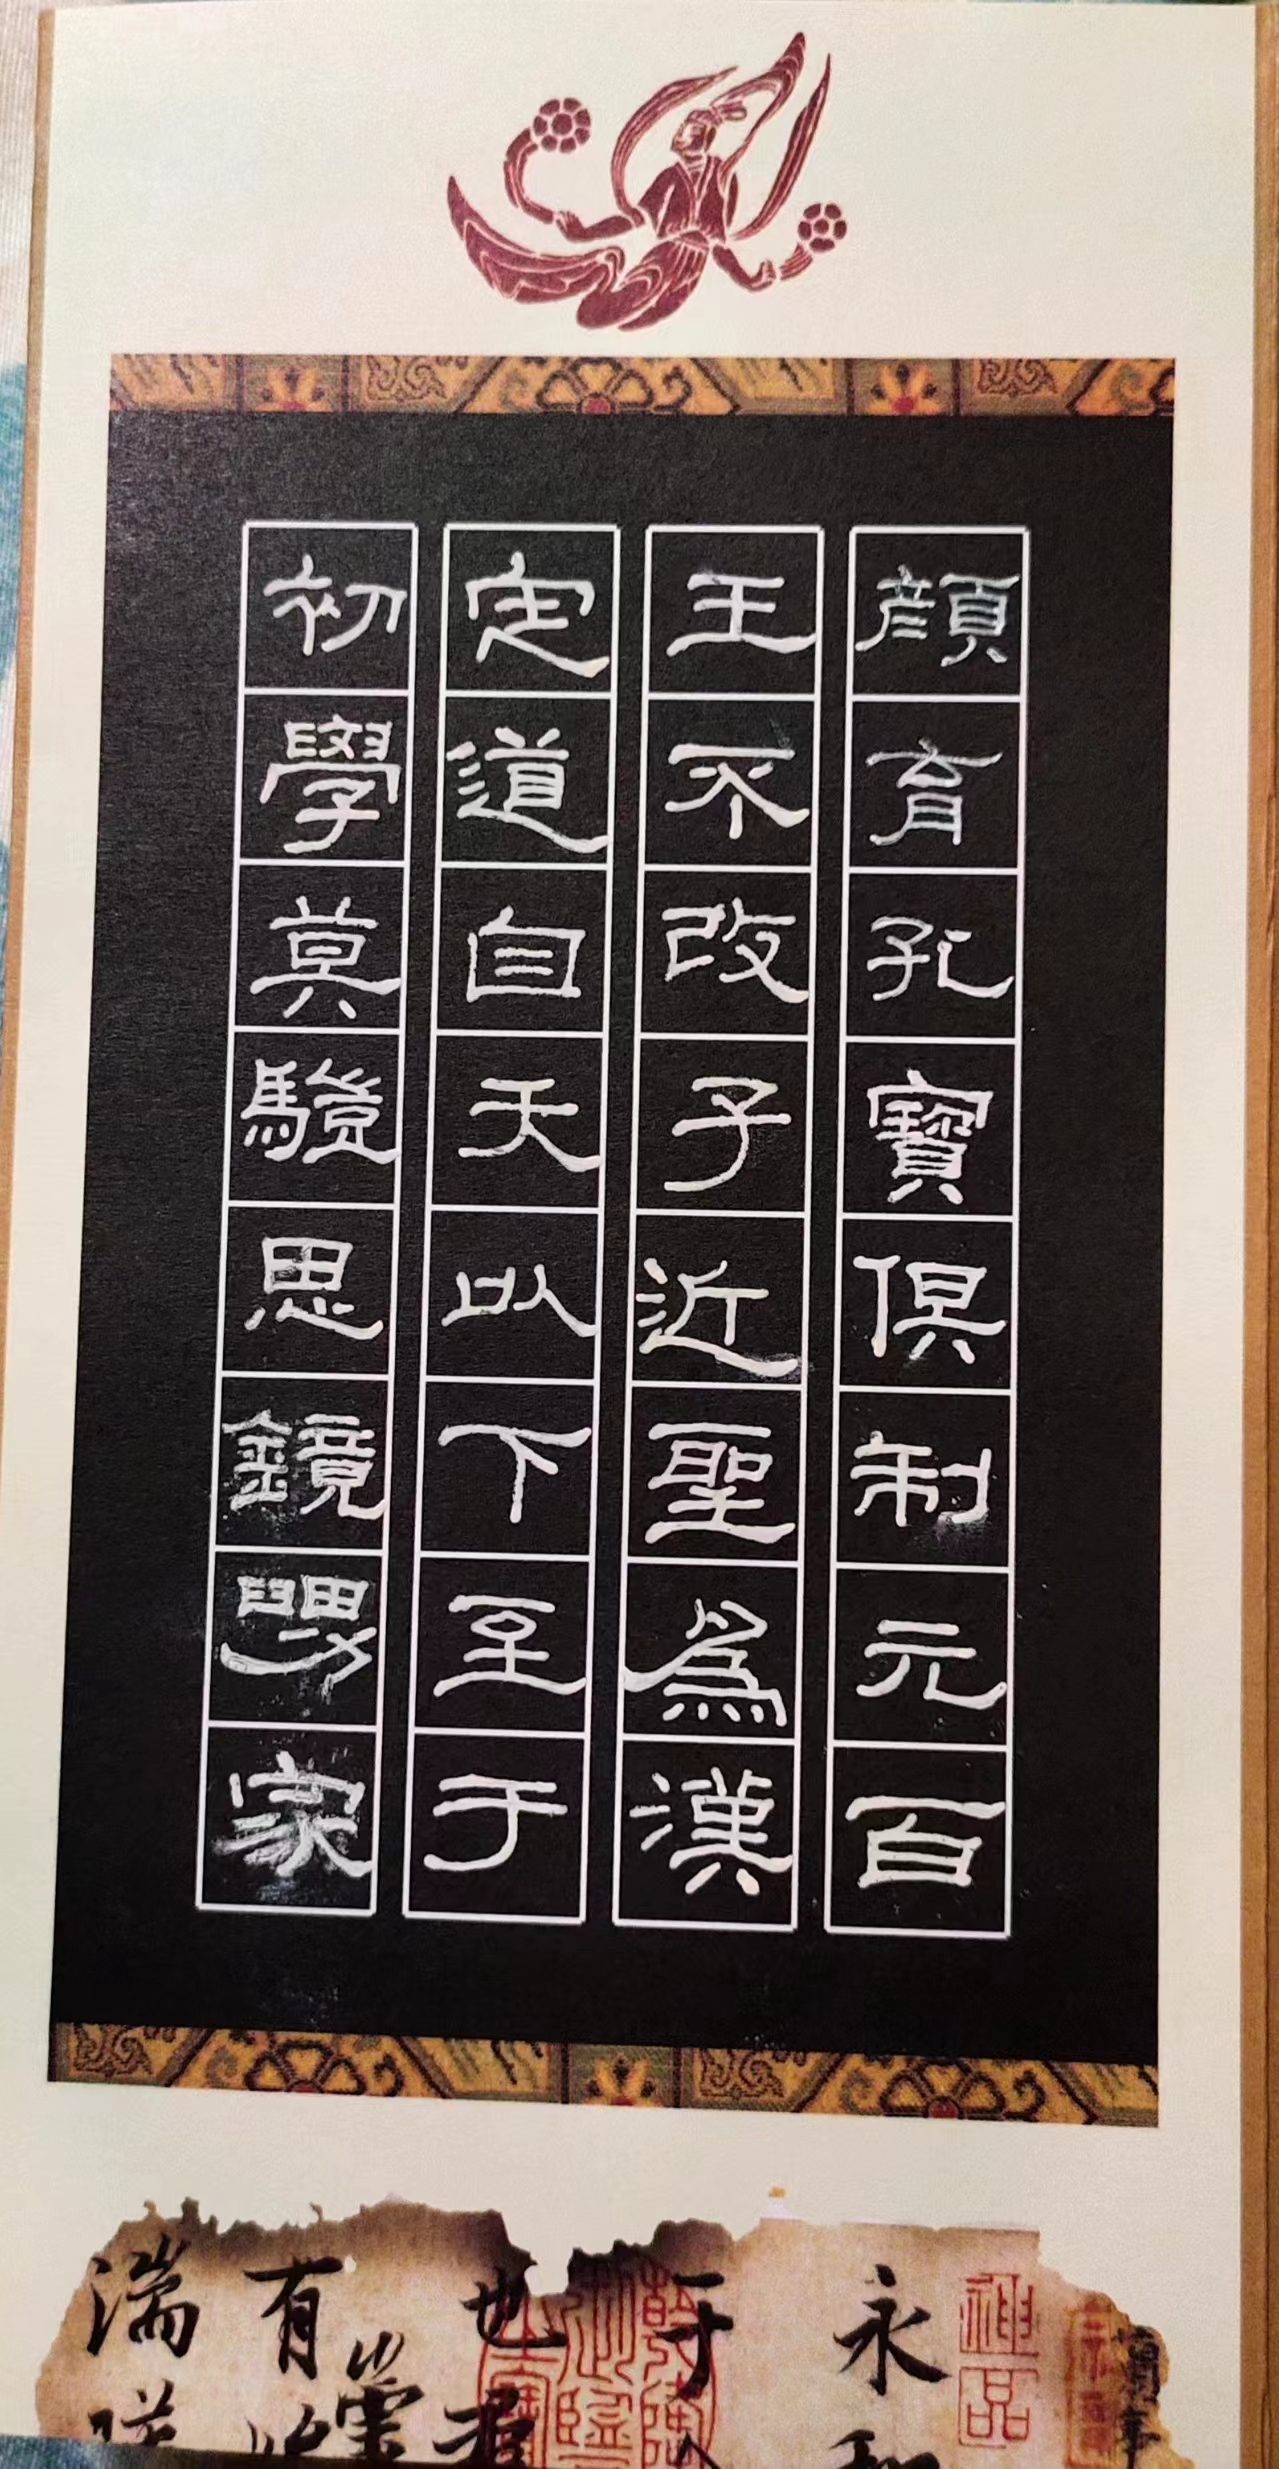 顏育孔寶俱制元百
王不改子近聖為漢
定道自天以下至于
初學莫驥思鏡舅家
神品
永和
于
也羣
有
湍